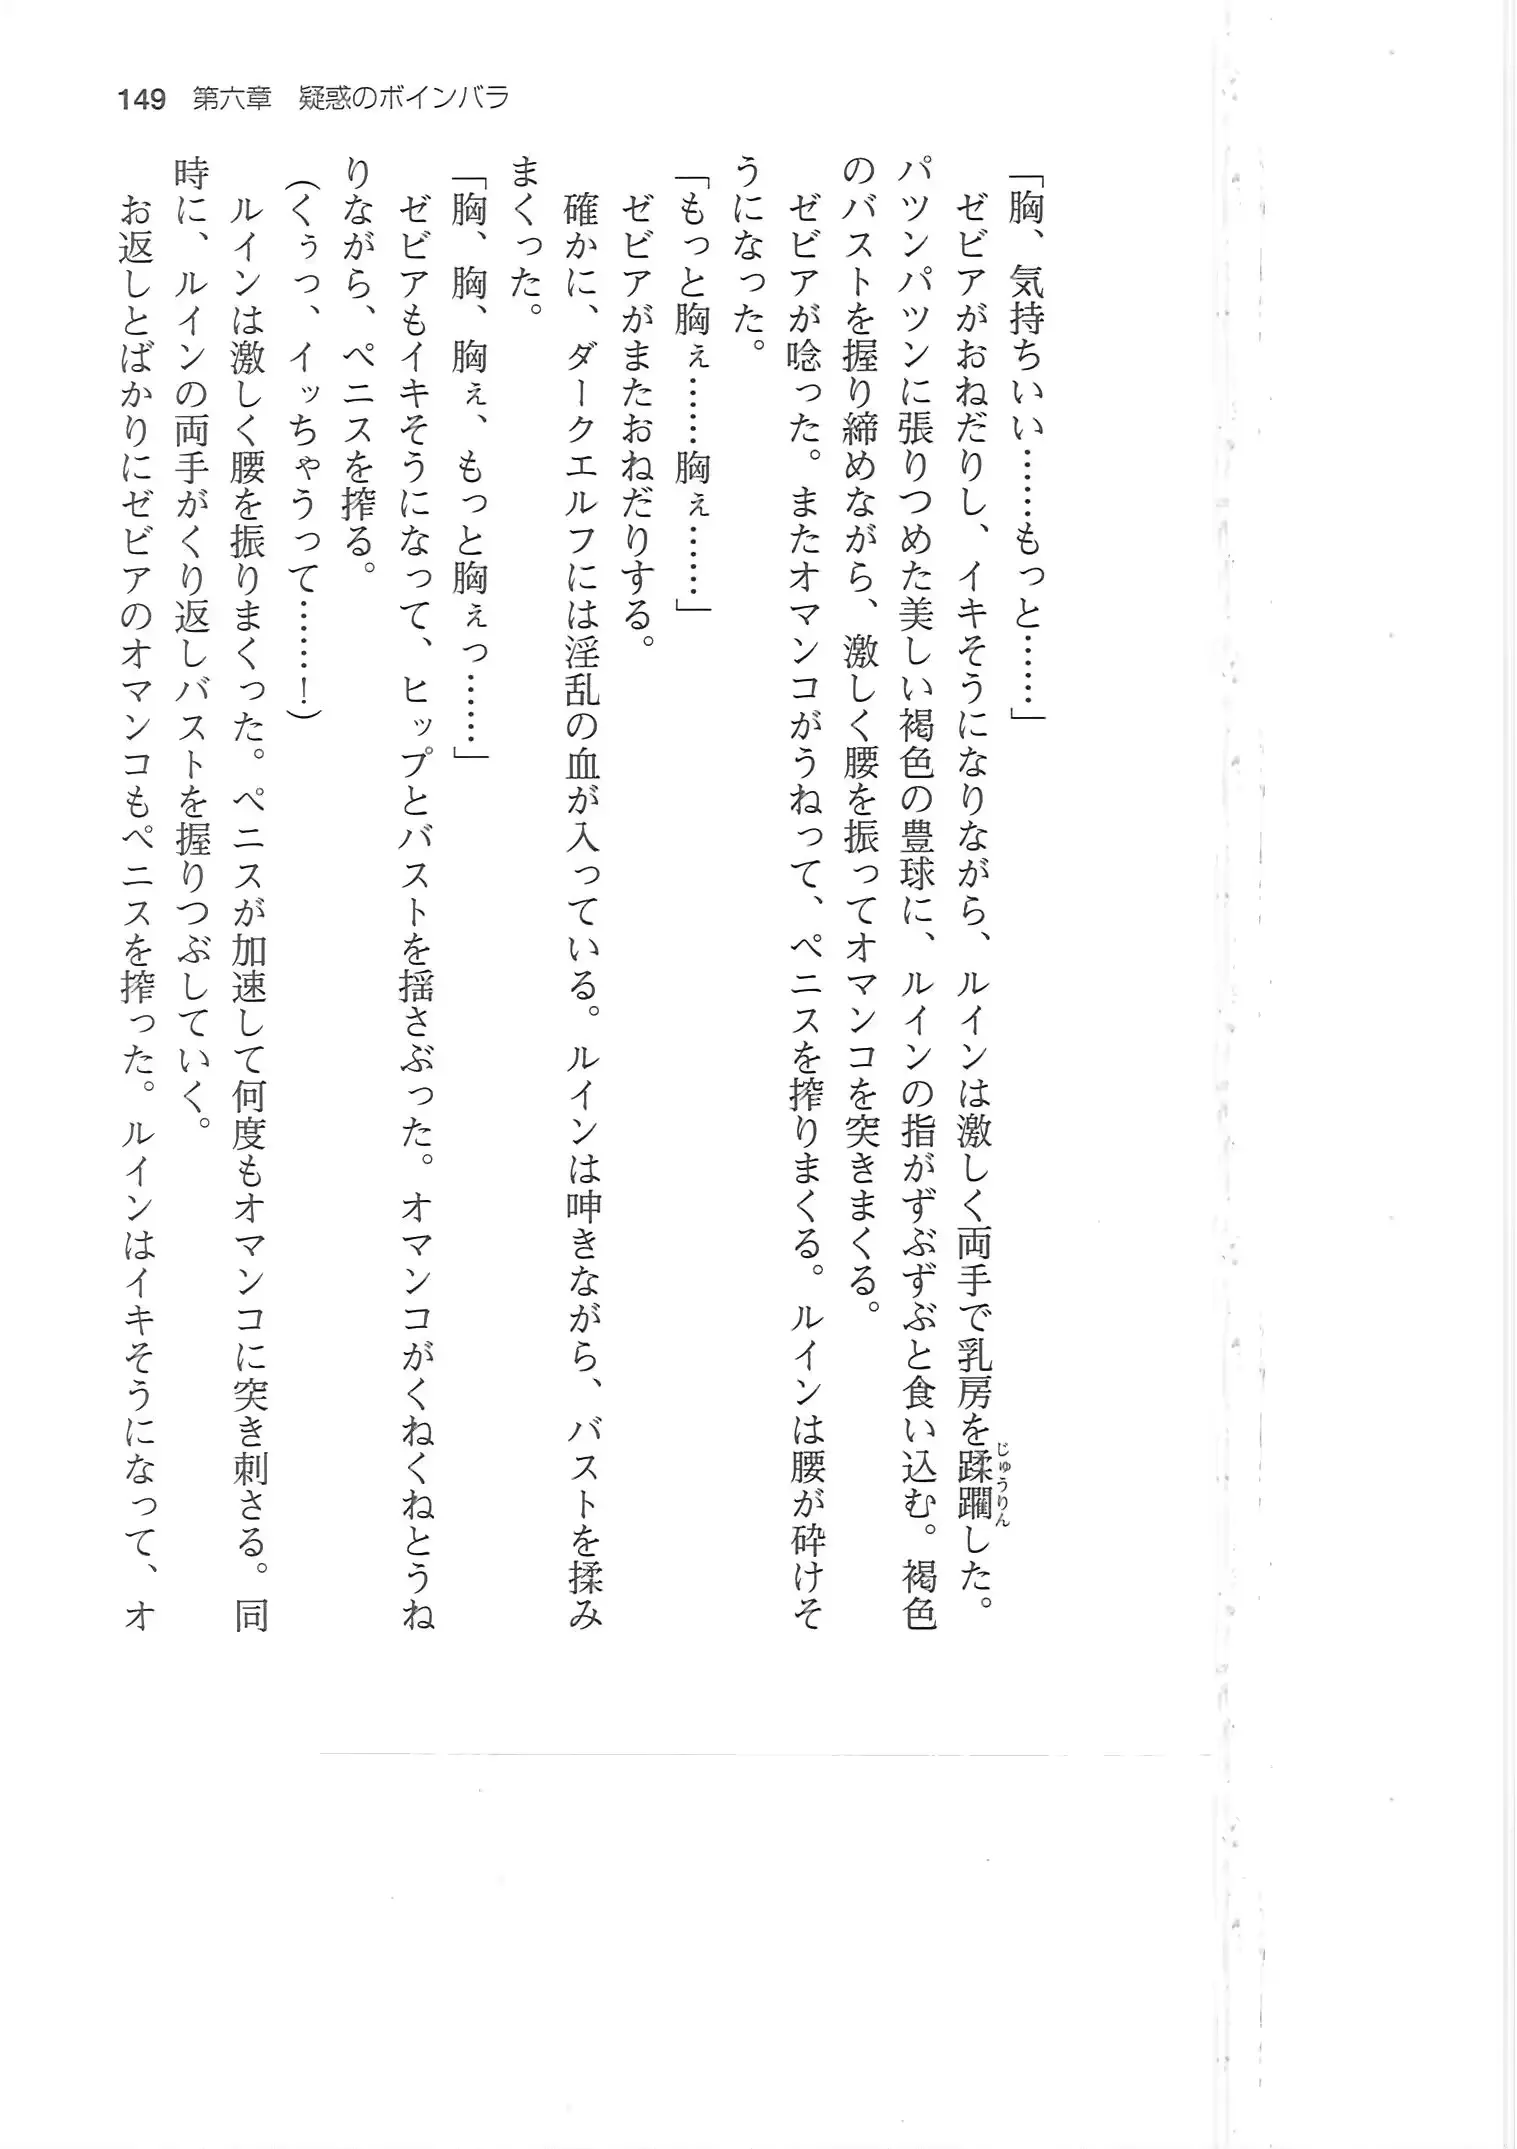 149 第六章 疑惑のボインバラ
「胸、気持ちいい……もっと……」
ゼビアがおねだりし、イキそうになりながら、ルインは激しく両手で乳房を蹂躙した。
じゅうりん
パツンパツンに張りつめた美しい褐色の豊球に、ルインの指がずぶずぶと食い込む。褐色
のバストを握り締めながら、激しく腰を振ってオマンコを突きまくる。
ゼビアが唸った。またオマンコがうねって、ペニスを搾りまくる。ルインは腰が砕けそ
うになった。
「もっと胸ぇ……胸ぇ……」
ゼビアがまたおねだりする。
確かに、ダークエルフには淫乱の血が入っている。ルインは呻きながら、バストを揉み
まくった。
「胸、胸、胸ぇ、もっと胸ぇっ……」
ゼビアもイキそうになって、ヒップとバストを揺さぶった。オマンコがくねくねとうね
りながら、ペニスを搾る。
（くぅっ、イッちゃうって……！）
ルインは激しく腰を振りまくった。ペニスが加速して何度もオマンコに突き刺さる。同
時に、ルインの両手がくり返しバストを握りつぶしていく。
お返しとばかりにゼビアのオマンコもペニスを搾った。ルインはイキそうになって、オ